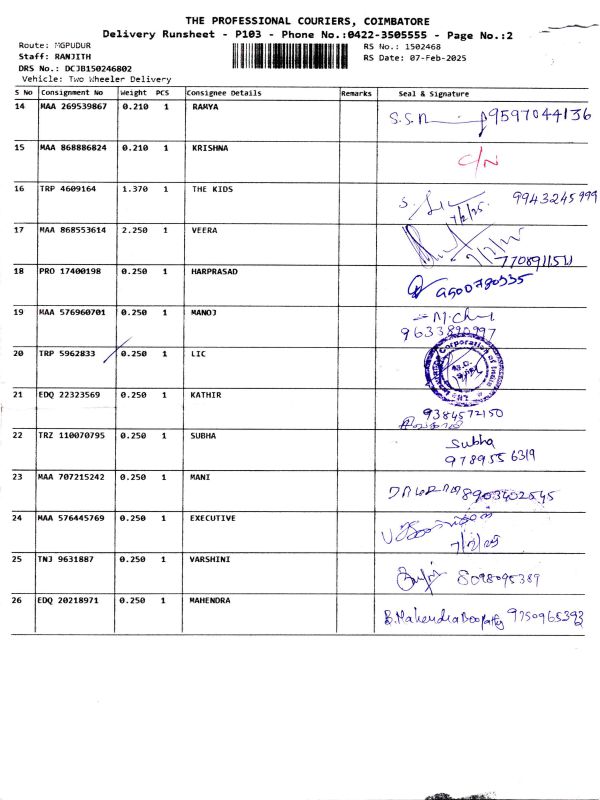 THE PROFESSIONAL COURIERS, COIMBATORE
Delivery Runsheet - P103 - Phone No.:0422-3505555 - Page No.:2
Route: MGPUDUR RS No.: 1502468
Staff: RANJITH RS Date: 07-Feb-2025
DRS No.: DCJB150246802
Vehicle: Two Wheeler Delivery
S No Consignment No Weight PCS Consignee Details Remarks Seal & Signature
14 MAA 269539867 0.210 1 RAMYA 9597044136
15 MAA 868886824 0.210 1 KRISHNA C/N
16 TRP 4609164 1.370 1 THE KIDS 9943245999
7/2/25
17 MAA 868553614 2.250 1 VEERA
18 PRO 17400198 0.250 1 HARPRASAD
19 MAA 576960701 0.250 1 MANOJ
9633890997
20 TRP 5962833 0.250 1 LIC
21 EDQ 22323569 0.250 1 KATHIR 9384572150
22 TRZ 110070795 0.250 1 SUBHA Subha
9789556319
23 MAA 707215242 0.250 1 MANI 8903402545
24 MAA 576445769 0.250 1 EXECUTIVE
25 TNJ 9631887 0.250 1 VARSHINI 8098095389
26 EDQ 20218971 0.250 1 MAHENDRA B.MahendraBoopathy 9750965393